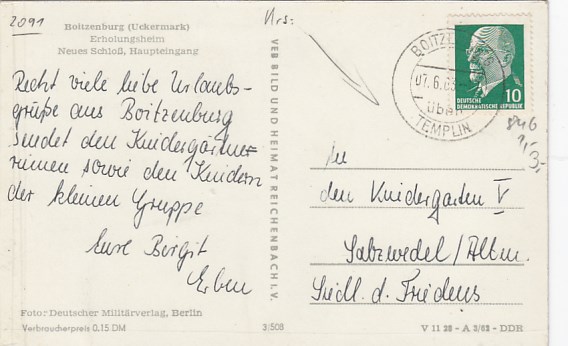 2091
Boitzenburg (Uckermark)
Erholungsheim
Neues Schloß, Haupteingang
Recht viele liebe Urlaubs-
grüße aus Boitzenburg
sendet den Kindergärtner-
rinnen sowie den Kindern
der kleinen Gruppe
Eure Birgit
Erben
Foto: Deutscher Militärverlag, Berlin
Verbraucherpreis 0.15 DM
VEB BILD UND HEIMAT REICHENBACH I. V.
3/508
BOITZENBURG
07.6.63
über
TEMPLIN
10
DEUTSCHE
DEMOKRATISCHE REPUBLIK
846
1,-3,-
An
den Kindergarten V
Salzwedel/Altm.
Siedl. d. Friedens
V 11 28 - A 3/63 - DDR